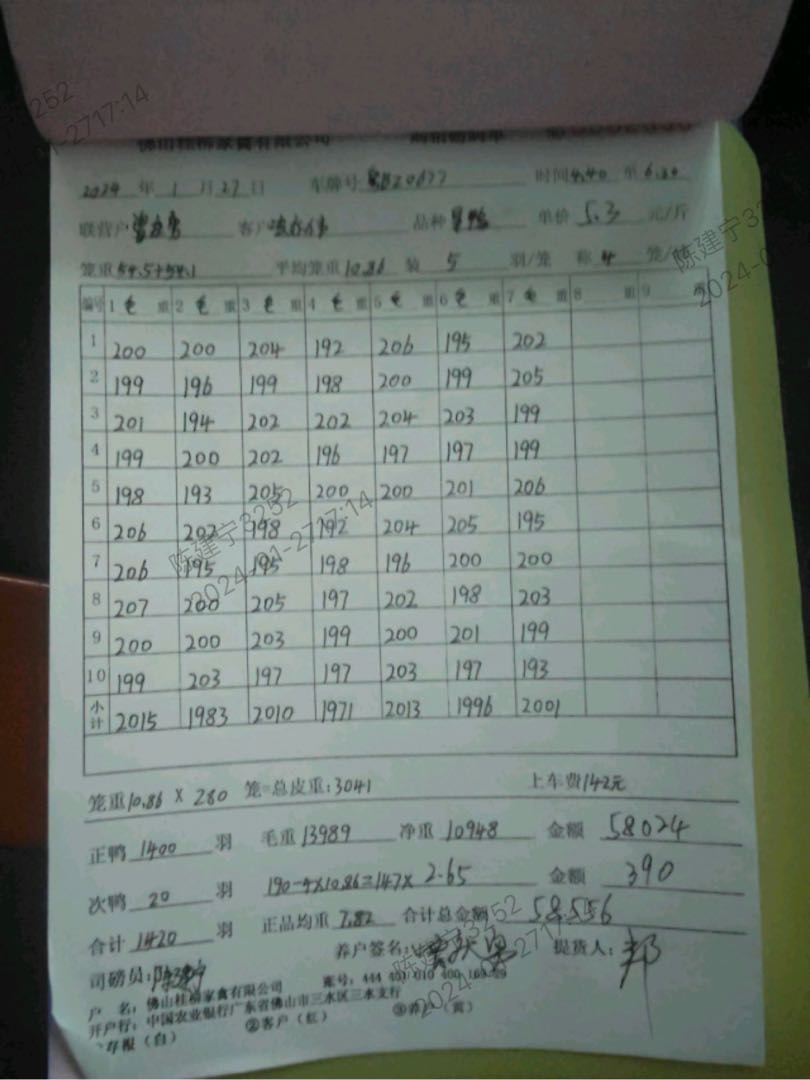 佛山桂柳家禽有限公司
2024 年 1 月 27 日 车牌号 时间 4.40 至 6.20
联营户 客户 品种 单价 5.3 元/斤
笼重 54.5+54.1 平均笼重 10.86 装 5 羽/笼 称 4 笼/
编号 1 毛 重 2 毛 重 3 毛 重 4 毛 重 5 毛 重 6 毛 重 7 毛 重 8 重 9 重
1 200 200 204 192 206 195 202
2 199 196 199 198 200 199 205
3 201 194 202 202 204 203 199
4 199 200 202 196 197 197 199
5 198 193 205 200 200 201 206
6 206 202 198 192 204 205 195
7 206 195 195 198 196 200 200
8 207 200 205 197 202 198 203
9 200 200 203 199 200 201 199
10 199 203 197 197 203 197 193
小计 2015 1983 2010 1971 2013 1996 2001
笼重 10.86 X 280 笼=总皮重: 3041 上车费 142元
正鸭 1400 羽 毛重 13989 净重 10948 金额 58024
次鸭 20 羽 190-4×10.86=147× 2.65 金额 390
合计 1420 羽 正品均重 7.82 合计总金额 58556
司磅员: 陈建宁 养户签名: 提货人: 邦
户 名: 佛山桂柳家禽有限公司 账号: 444 401 010 400 169 29
开户行: 中国农业银行广东省佛山市三水区三水支行
①存根（白） ②客户（红） ③养户（黄）
陈建宁3252
2024-01-27 17:14